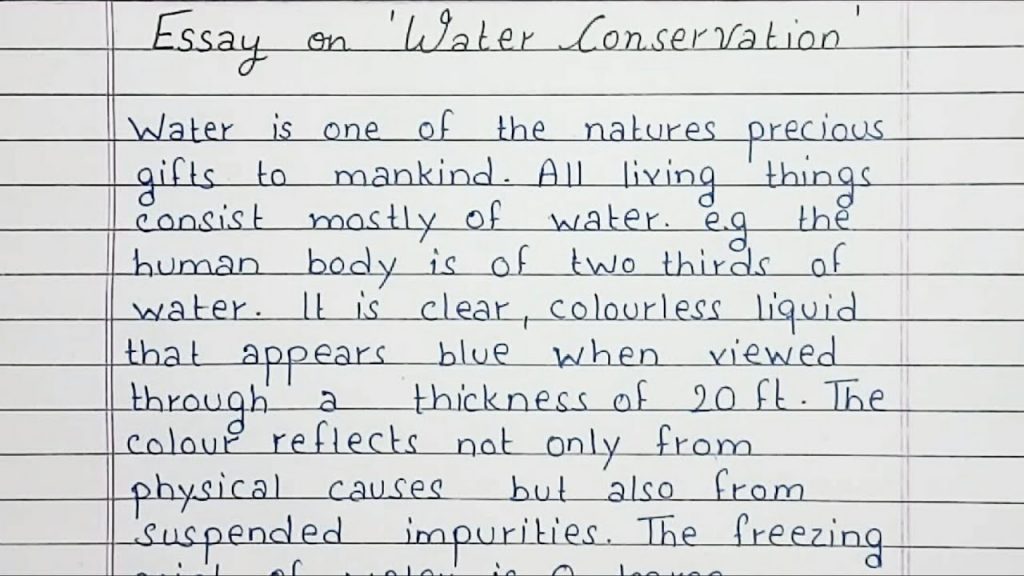 Essay on 'Water Conservation'
Water is one of the natures precious
gifts to mankind. All living things
consist mostly of water. e.g the
human body is of two thirds of
water. It is clear, colourless liquid
that appears blue when viewed
through a thickness of 20 ft. The
colour reflects not only from
physical causes but also from
suspended impurities. The freezing